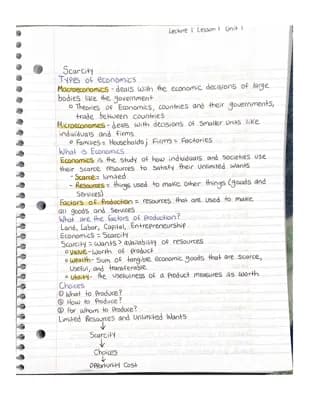 Lecture 1 Lesson 1 Unit 1
Scarcity
Types of Economics
Macroeconomics - deals with the economic decisions of large
bodies like the government
○ Theories of Economics, countries and their governments,
trade between countries
Microeconomics - deals with decisions of smaller units like
individuals and firms.
○ Families = Households; Firms = Factories
What is Economics
Economics is the study of how individuals and societies use
their scarce resources to satisfy their unlimited wants
- Scarce = limited
- Resources = things used to make other things (goods and
services)
Factors of Production = resources that are used to make
all goods and services
What are the factors of production?
Land, Labor, Capital, Entrepreneurship
Economics = Scarcity
Scarcity = wants > availability of resources
○ Value - worth of product
○ Wealth - Sum of tangible economic goods that are scarce,
useful, and transferable
○ Utility - the usefulness of a product measures as worth
Choices
① What to Produce?
② How to Produce?
③ For whom to Produce?
Limited Resources and Unlimited Wants
↓
Scarcity
↓
Choices
↓
Opportunity Cost